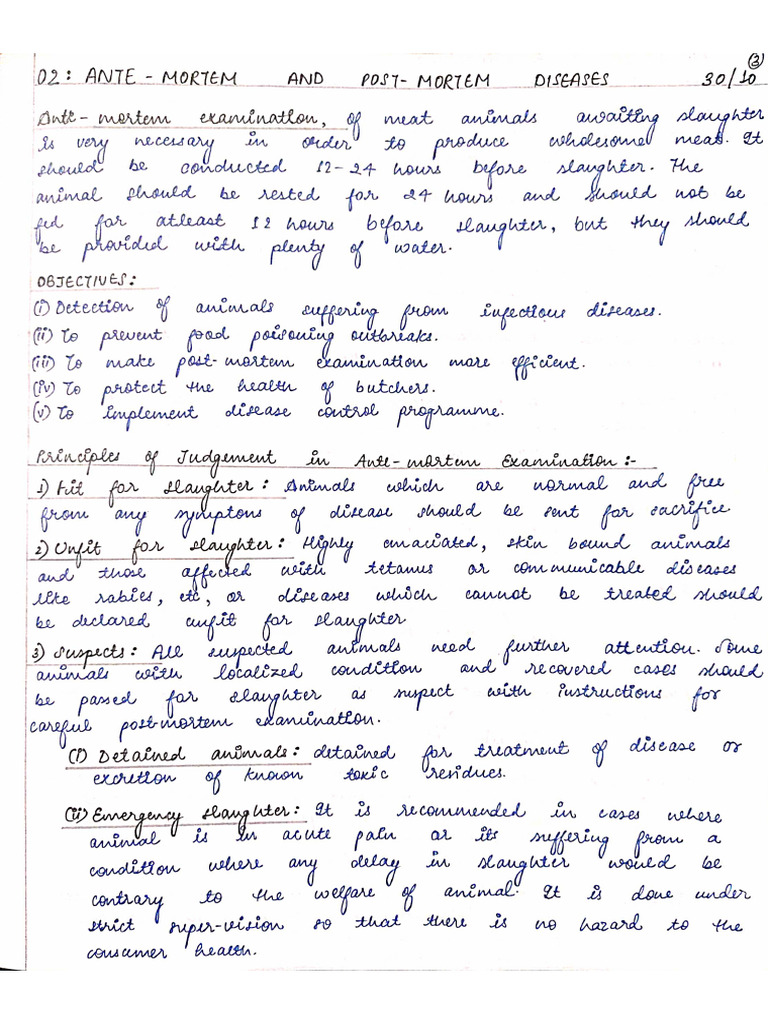 3
02: ANTE-MORTEM AND POST-MORTEM DISEASES 30/10
Anti-mortem examination, of meat animals awaiting slaughter
is very necessary in order to produce wholesome meat. It
should be conducted 12-24 hours before slaughter. The
animal should be rested for 24 hours and should not be
fed for atleast 12 hours before slaughter, but they should
be provided with plenty of water.
OBJECTIVES:
(i) Detection of animals suffering from infectious diseases.
(ii) To prevent food poisoning outbreaks.
(iii) To make post-mortem examination more efficient.
(iv) To protect the health of butchers.
(v) To implement disease control programme.
Principles of Judgement in Ante-mortem Examination:-
1) Fit for slaughter: Animals which are normal and free
from any symptons of disease should be sent for sacrifice
2) Unfit for slaughter: Highly emaciated, skin bound animals
and those affected with tetanus or communicable diseases
like rabies, etc, or diseases which cannot be treated should
be declared unfit for slaughter
3) Suspects: All suspected animals need further attention. Some
animals with localized condition and recovered cases should
be passed for slaughter as suspect with instructions for
careful post-mortem examination.
(i) Detained animals: detained for treatment of disease or
excretion of known toxic residues.
(ii) Emergency slaughter: It is recommended in cases where
animal is in acute pain or its suffering from a
condition where any delay in slaughter would be
contrary to the welfare of animal. It is done under
strict super-vision so that there is no hazard to the
consumer health.